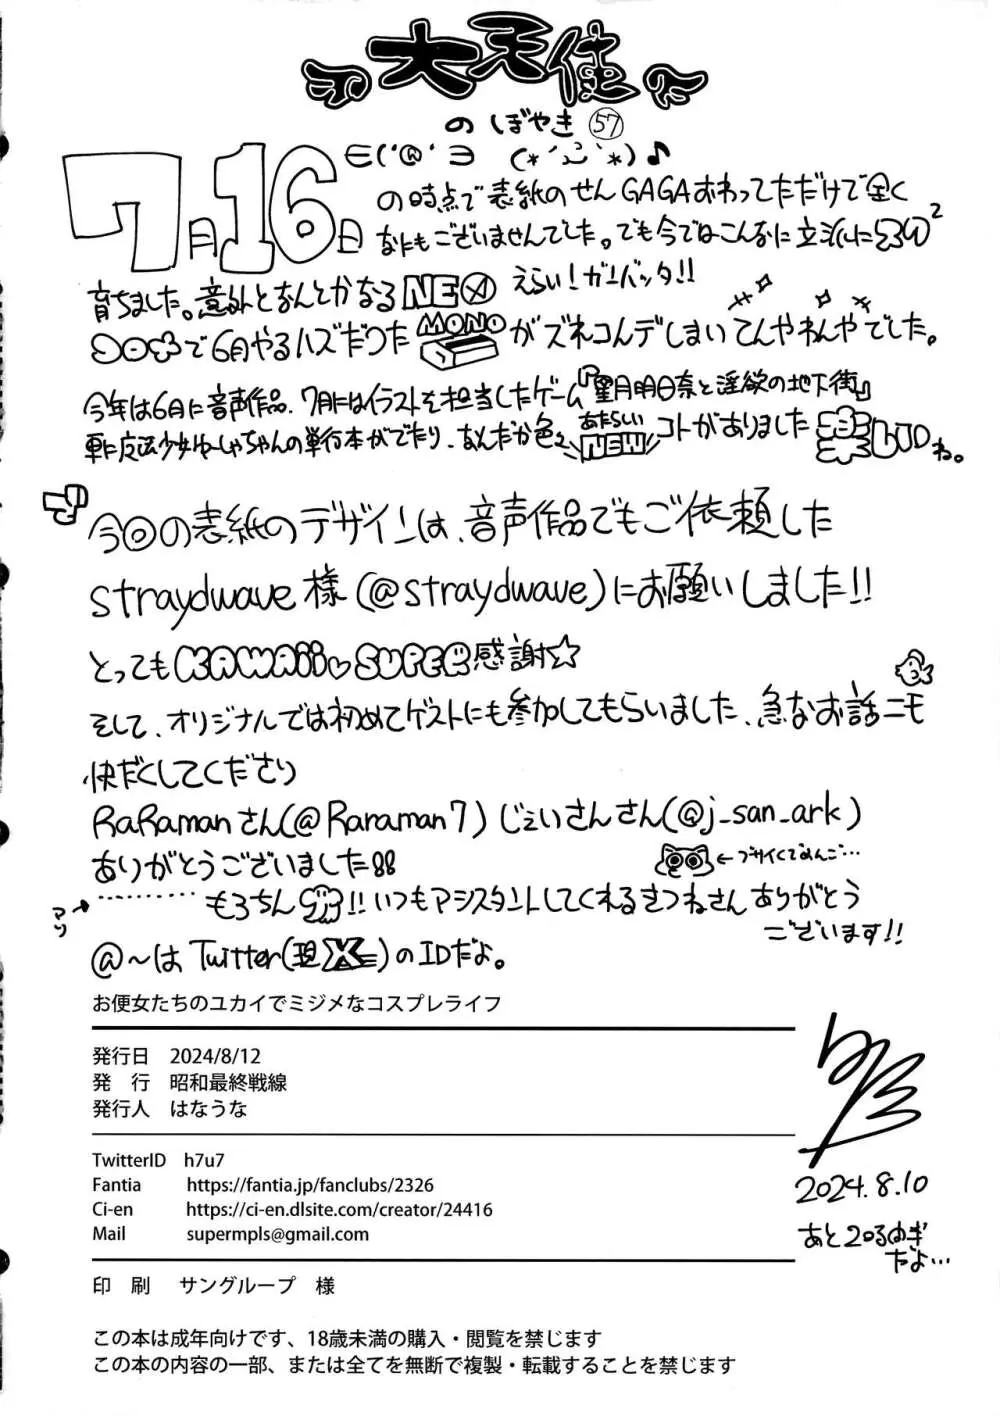 大天使
のぼやき 57
7月16日
の時点で表紙のせんGAGAおわってただけで全く
なにもございませんでした。でも今ではこんなに立派に
育ちました。意外となんとかなるNEX えらい!ガンバッタ!!
で6月やるハズだった MONO がズレコンデしまい てんやわんやでした。
今年は6月に音声作品、7月にはイラストを担当したゲーム『星月明日奈と淫欲の地下街』
更に 単行本がでたり、なんだか色々 あたらしい NEW コトがありました ね。
今回の表紙のデザインは、音声作品でもご依頼した
straydwave様(@straydwave)にお願いしました!!
とってもKAWAii♡SUPER感謝☆
そして、オリジナルでは初めてゲストにも参加してもらいました、急なお話ニモ
快だくしてくださり
RaRamanさん(@Raraman7) じぇいさんさん(@j_san_ark)
ありがとうございました!!
←ブサイクでめんご…
マリ→ ………もろちん!!いつもアシスタントしてくれるきつねさんありがとう
ございます!!
@〜はTwitter(現X)のIDだよ。
お便女たちのユカイでミジメなコスプレライフ
発行日 2024/8/12
発 行 昭和最終戦線
発行人 はなうな
TwitterID h7u7
Fantia https://fantia.jp/fanclubs/2326
Ci-en https://ci-en.dlsite.com/creator/24416
Mail supermpls@gmail.com
印 刷 サングループ 様
この本は成年向けです、18歳未満の購入・閲覧を禁じます
この本の内容の一部、または全てを無断で複製・転載することを禁じます
2024.8.10
あと
だよ…